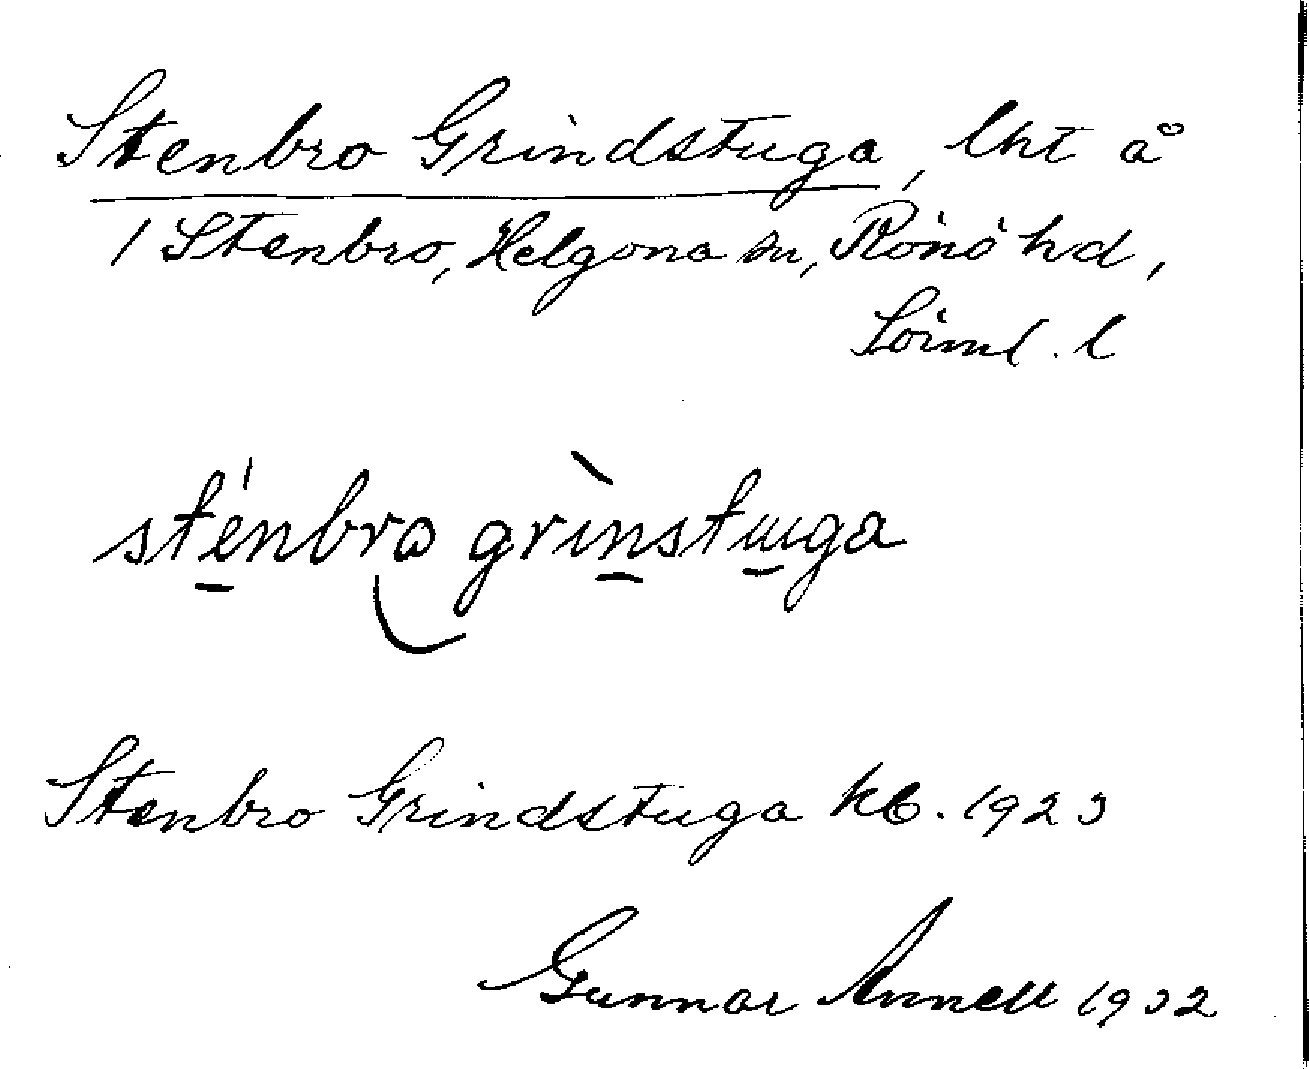 Stenbro Grindstuga, lht å
1 Stenbro, Helgona sn, Rönö hd,
Sörml. l
sténbro grìnstuga
Stenbro Grindstuga kb. 1923
Gunnar Annell 1932